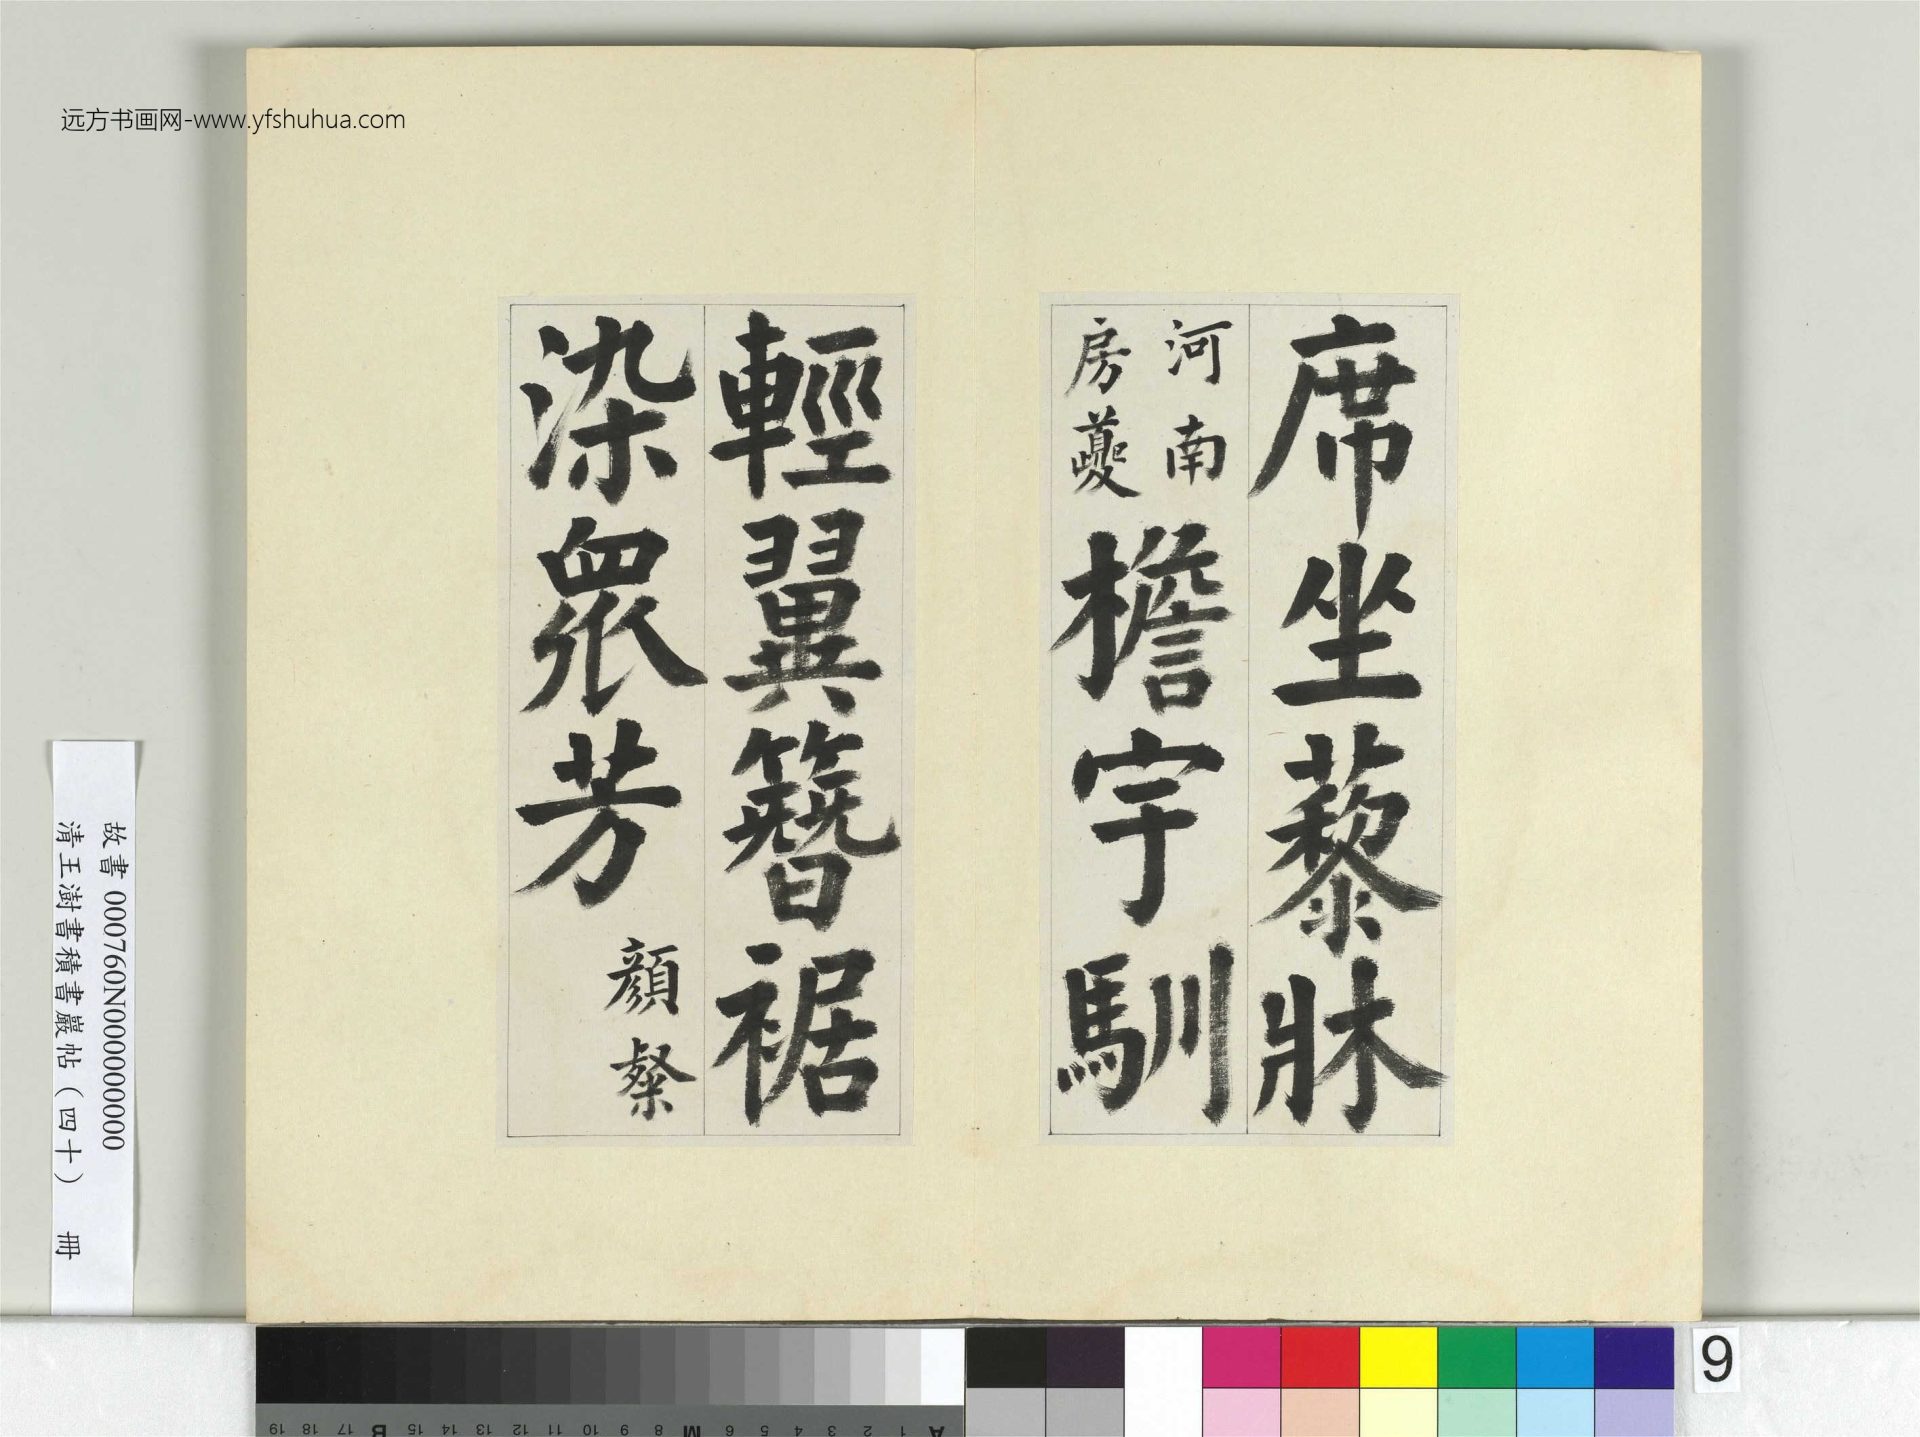 远方书画网-www.yfshuhua.com
席坐藜牀
河南
房夔
檐宇馴
輕翼簪裾
染衆芳
顏粲
故書 000760N000000000
清王澍書積書巖帖（四十） 冊
9
A 1 2 3 4 5 6 M 8 9 10 11 12 13 14 15 B 17 18 19